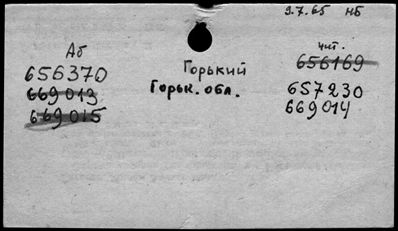 9.7.65 НБ
Аб
656370
669013
669015
Горький
Горьк. обл.
чит.
656169
657230
669014